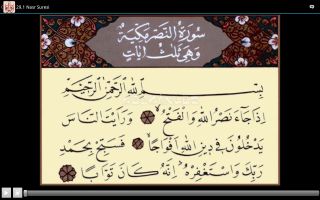 29.1 Nasr Suresi
سُورَةُ النَّصْرِ مَكِّيَّةٌ
وَهِيَ ثَلٰثُ اٰيَاتٍ
بِسْمِ اللّٰهِ الرَّحْمٰنِ الرَّحِيمِ
اِذَا جَٓاءَ نَصْرُ اللّٰهِ وَالْفَتْحُۙ وَرَاَيْتَ النَّاسَ
يَدْخُلُونَ فِى دِينِ اللّٰهِ اَفْوَاجًاۙ فَسَبِّحْ بِحَمْدِ
رَبِّكَ وَاسْتَغْفِرْهُۜ اِنَّهُ كَانَ تَوَّابًا